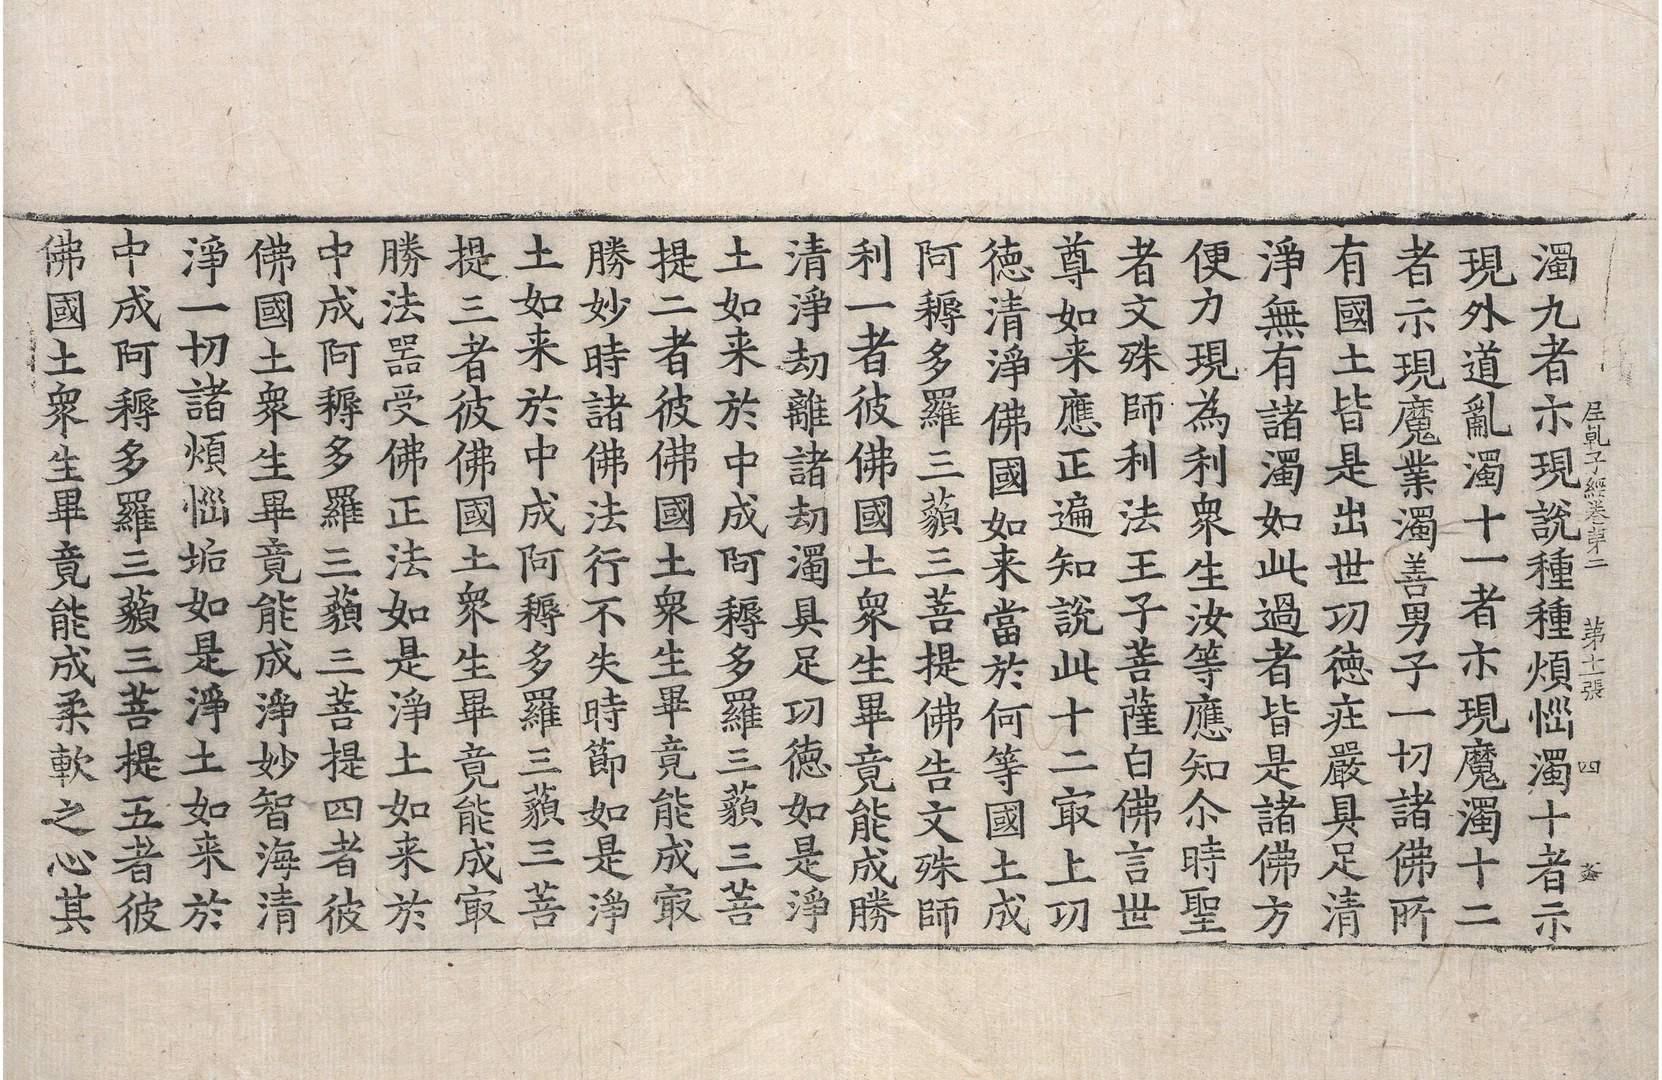 尼乹子經卷第二　第十一張　四　盖
濁九者示現說種種煩惱濁十者示
現外道亂濁十一者示現魔濁十二
者示現魔業濁善男子一切諸佛所
有國土皆是出世功徳㽵嚴具足清
淨無有諸濁如此過者皆是諸佛方
便力現為利衆生汝等應知尒時聖
者文殊師利法王子菩薩白佛言世
尊如来應正遍知說此十二㝡上功
徳清淨佛國如来當於何等國土成
阿耨多羅三藐三菩提佛告文殊師
利一者彼佛國土衆生畢竟能成勝
清淨劫離諸劫濁具足功徳如是淨
土如来於中成阿耨多羅三藐三菩
提二者彼佛國土衆生畢竟能成㝡
勝妙時諸佛法行不失時節如是淨
土如来於中成阿耨多羅三藐三菩
提三者彼佛國土衆生畢竟能成㝡
勝法器受佛正法如是淨土如来於
中成阿耨多羅三藐三菩提四者彼
佛國土衆生畢竟能成淨妙智海清
淨一切諸煩惱垢如是淨土如来於
中成阿耨多羅三藐三菩提五者彼
佛國土衆生畢竟能成柔軟之心其